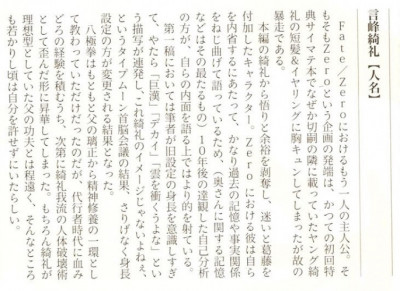 言峰綺礼【人名】
　Ｆａｔｅ／Ｚｅｒｏにおけるもう一人の主人公。そ
もそもＺｅｒｏという企画の発端は、かつての初回特
典サイマテ本でなぜか切嗣の隣に載っていたヤング綺
礼の短髪＆イヤリングに胸キュンしてしまったが故の
暴走である。
　本編の綺礼から悟りと余裕を剥奪し、迷いと葛藤を
付加したキャラクター。Ｚｅｒｏにおける彼は自ら
を内省するにあたって、かなり過去の記憶や事実関係
をねじ曲げて語っているため、（奥さんに関する記憶
などはその最たるもの）１０年後の達観した自己分析
の方が、自らの内面を語る上ではより的を射ている。
　第一稿においては筆者が旧設定の身長を意識しすぎ
て、やたら「巨漢」「デカイ」「雲を衝くような」とい
う描写が連発し、これ綺礼のイメージじゃないよねぇ、
というタイプムーン首脳会議の結果、さりげなく身長
設定の方が変更される結果となった。
　八極拳はもともと父の璃正から精神修養の一環とし
て教わっていただけだったのだが、代行者時代に血み
どろの経験を積むうち、次第に綺礼我流の人体破壊術
として歪んだ形に昇華してしまった。もちろん綺礼が
理想型としていた父の功夫とは程遠く、そんなところ
も若かりし頃は自分を許せずにいたらしい。